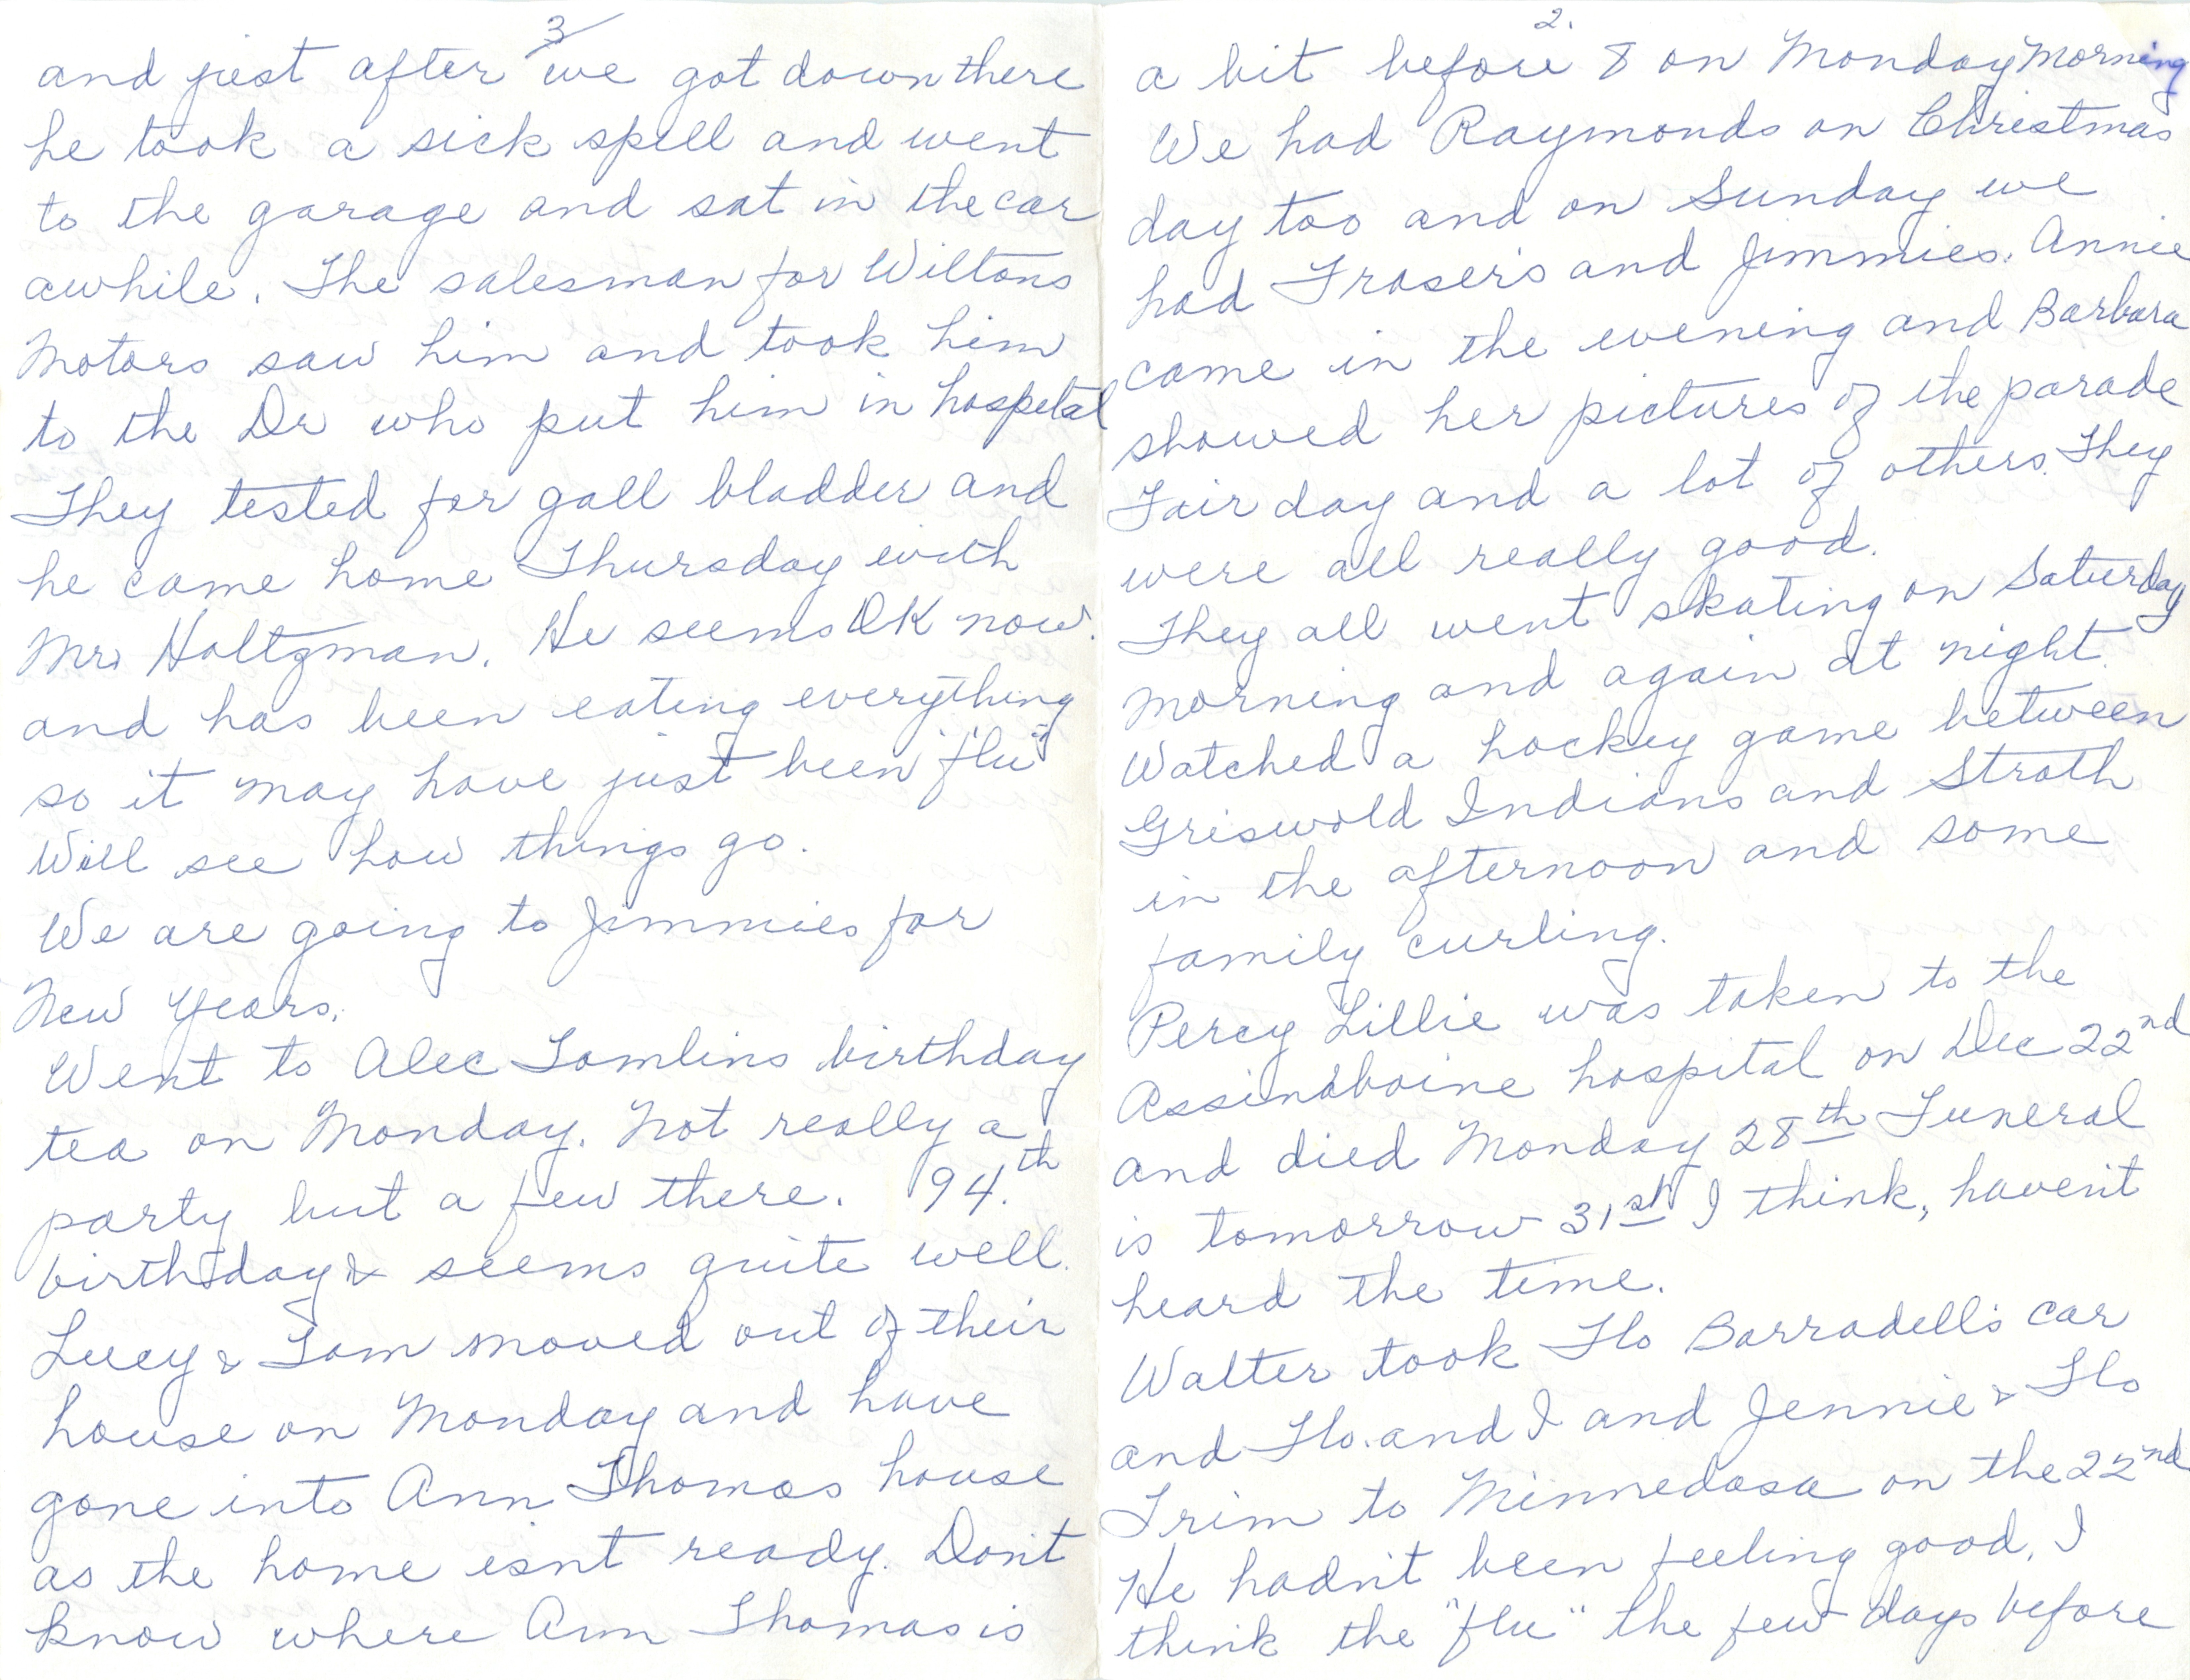 2.
a bit before 8 on Monday Morning
We had Raymonds on Christmas
day too and on Sunday we
had Fraser's and Jimmies. Annie
came in the evening and Barbara
showed her pictures of the parade
Fair day and a lot of others. They
were all really good.
They all went skating on Saturday
morning and again at night.
Watched a hockey game between
Griswold Indians and Strath
in the afternoon and some
family curling.
Percy Lillie was taken to the
Assiniboine hospital on Dec 22nd
and died Monday 28th Funeral
is tomorrow 31st I think, haven't
heard the time.
Walter took Flo Barradell's car
and Flo. and I and Jennie & Flo
Trim to Minnedosa on the 22nd
He hadn't been feeling good, I
think the "flu" the few days before
3
and just after we got down there
he took a sick spell and went
to the garage and sat in the car
awhile. The salesman for Wiltons
Motors saw him and took him
to the Dr who put him in hospital
They tested for gall bladder and
he came home Thursday with
Mrs Holtzman. He seems OK now.
and has been eating everything
so it may have just been "flu"
Will see how things go.
We are going to Jimmies for
New Years.
Went to Alec Tomlins birthday
tea on Monday. Not really a
party but a few there. 94.th
birthday & seems quite well.
Lucy & Tom moved out of their
house on Monday and have
gone into Ann Thomas house
as the home isn't ready. Don't
know where Ann Thomas is